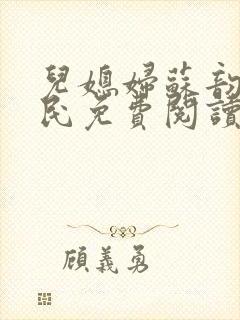 兒媳婦蘇韵
民免費閱讀
顧義勇